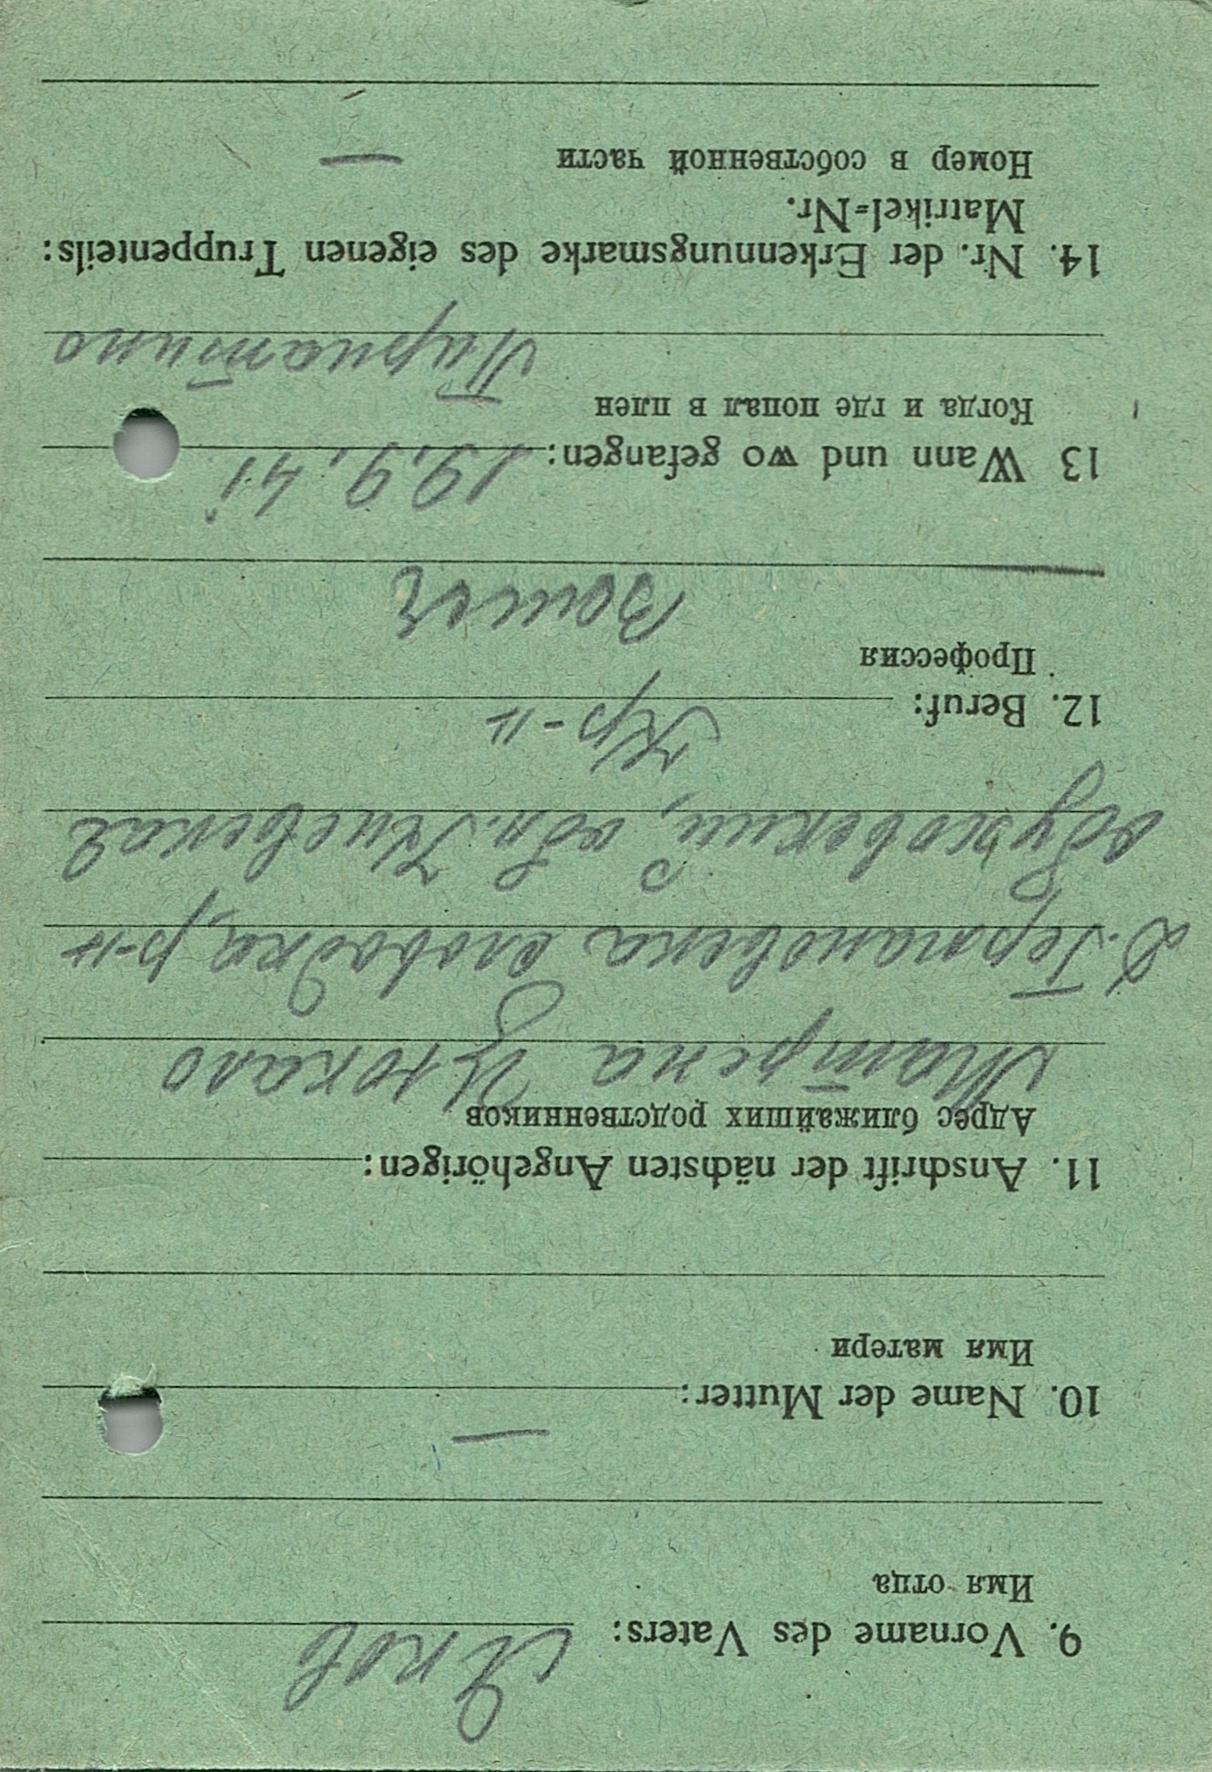 9. Vorname des Vaters: Яков
Имя отца
10. Name der Mutter: —
Имя матери
11. Anschrift der nächsten Angehörigen:
Адрес ближайших родственников
Матрена Цюкало
д. Германовска слободка, р-н
обуховский, обл. Киевская
12. Beruf: Кр-н
Профессия
13 Wann und wo gefangen: 19. 9. 41
Когда и где попал в плен
Пирятино
14. Nr. der Erkennungsmarke des eigenen Truppenteils:
Matrikel=Nr.
Номер в собственной части —